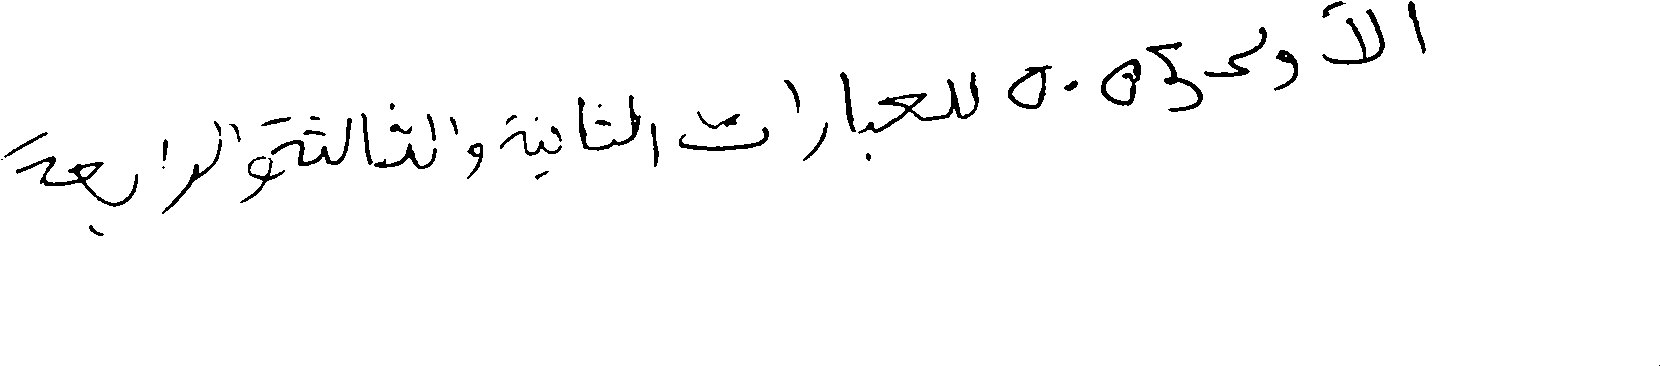 الأولى 0.03 للعبارات الثانية والثالثة والرابعة